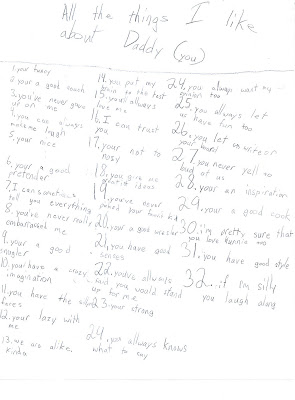 All the things I like
about Daddy (you)
1. your funny
2. your a good
3. you've never gave
up on me
4. you can always
make me laugh
5. your nice
6. your a good
pretender
7. I can
tell you everything
8. you've never really
embarrassed me
9. your a good
snugler
10. you have a crazy
imagination
11. you have the
faces
12. your lazy with
me
13. we are alike.
kinda
14. you put my
brain to the test
15. you'll allways
love me
16. I can trust
you
17. your not to
nosy
18. you give me
ideas
19. you've never
20. your a good
21. you have good
senses
22. you've allways
said you would stand
up for me
23. your strong
24. you allways knows
what to say
24. you allways want my
opinion too
25. you allways let
us have fun too
26. you let us write or
your board
27. you never yell so
loud at us
28. your an inspiration
29. your a good cook
30. im pretty sure that
you love
31. you have good style
32. if im silly
you laugh along